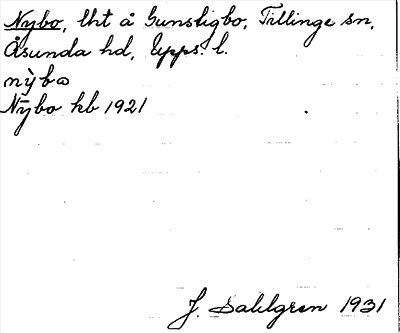 Nybo, lht å Gunsligbo, Tillinge sn,
Åsunda hd, Upps. l.
nỳbω
Nybo kb 1921
J. Sahlgren 1931